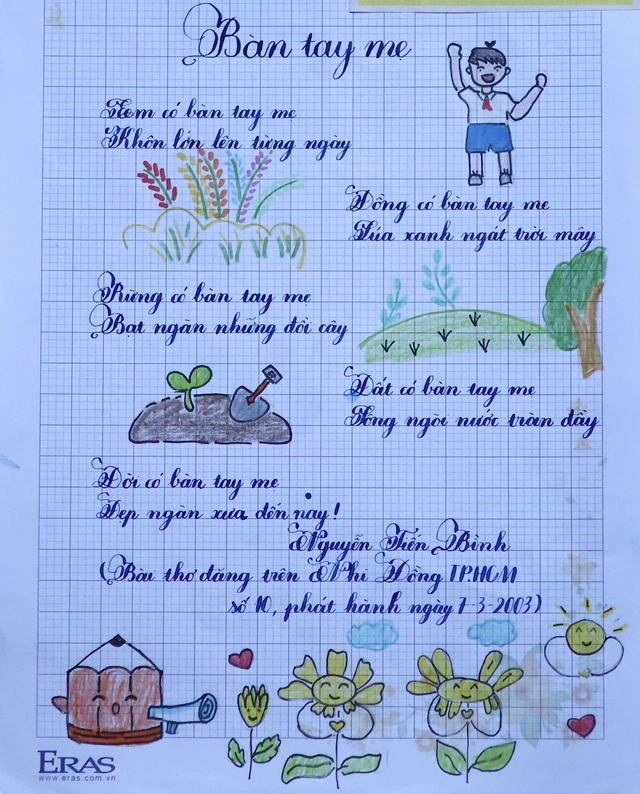 Bàn tay mẹ
Em có bàn tay mẹ
Khôn lớn lên từng ngày
Đồng có bàn tay mẹ
Lúa xanh ngát trời mây
Rừng có bàn tay mẹ
Bạt ngàn những đồi cây
Đất có bàn tay mẹ
Sông ngòi nước tràn đầy
Đời có bàn tay mẹ
Đẹp ngàn xưa đến nay!
Nguyễn Tiến Bình
(Bài thơ đăng trên Nhi Đồng TP.HCM
số 10, phát hành ngày 7-3-2003)
ERAS
www.eras.com.vn